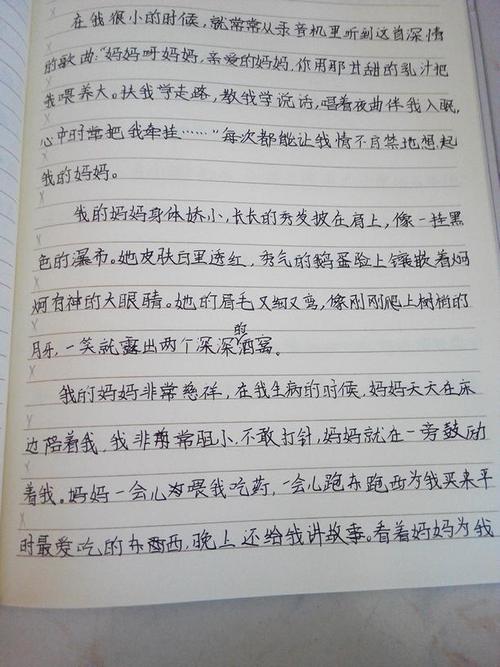 在我很小的时候，就常常从录音机里听到这首深情
的歌曲："妈妈呀妈妈，亲爱的妈妈，你用那甘甜的乳汁把
我喂养大。扶我学走路，教我学说话，唱着夜曲伴我入眠，
心中时常把我牵挂……"每次都能让我情不自禁地想起
我的妈妈。
我的妈妈身体娇小，长长的秀发披在肩上，像一挂黑
色的瀑布。她皮肤白里透红，秀气的鹅蛋脸上镶嵌着炯
炯有神的大眼睛。她的眉毛又细又弯，像刚刚爬上树梢的
月牙，一笑就露出两个深深的酒窝。
我的妈妈非常慈祥，在我生病的时候，妈妈天天在床
边陪着我，我非常胆小，不敢打针，妈妈就在一旁鼓励
着我。妈妈一会心喂我吃药，一会心跑东跑西为我买来平
时最爱吃的东西，晚上还给我讲故事。看着妈妈为我